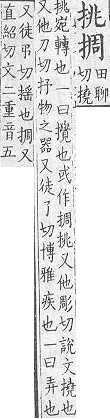 挑㨄田聊切撓
挑宛轉也一曰攪也或作㨄挑又他彫切說文撓也
又他刀切抒物之器又徒了切博雅疾也一曰弄也
又徒弔切搖也㨄又
直紹切文二重音五